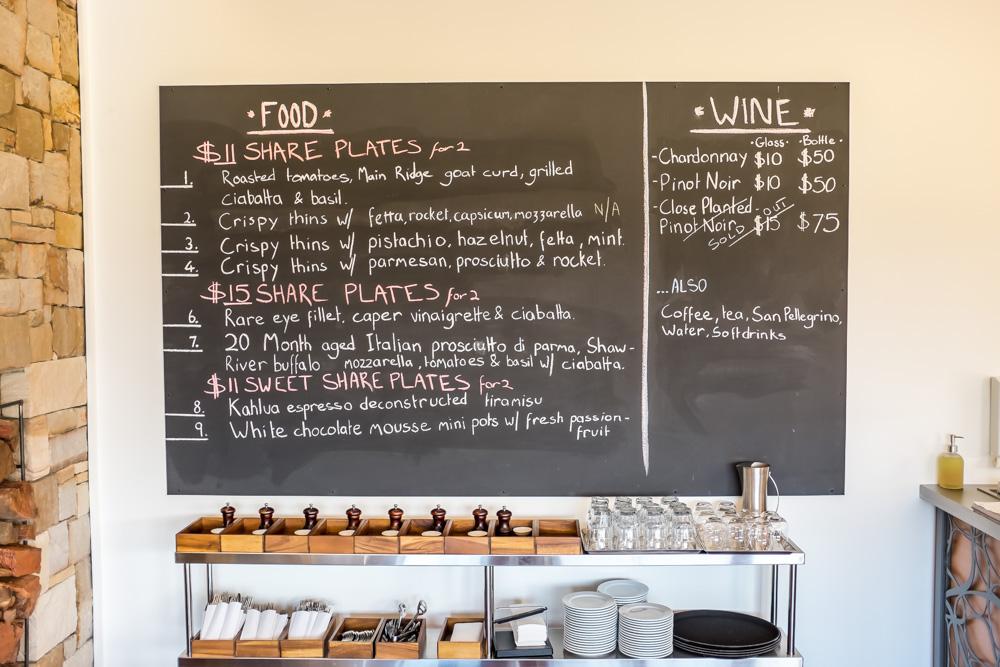 FOOD
$11 SHARE PLATES for 2
1. Roasted tomatoes, Main Ridge goat curd, grilled
ciabatta & basil.
2. Crispy thins w/ fetta, rocket, capsicum, mozzarella N/A
3. Crispy thins w/ pistachio, hazelnut, fetta, mint.
4. Crispy thins w/ parmesan, prosciutto & rocket.
$15 SHARE PLATES for 2
6. Rare eye fillet, caper vinaigrette & ciabatta.
7. 20 Month aged Italian prosciutto di parma, Shaw-
River buffalo mozzarella, tomatoes & basil w/ ciabatta.
$11 SWEET SHARE PLATES for 2
8. Kahlua espresso deconstructed tiramisu
9. White chocolate mousse mini pots w/ fresh passion-
fruit
WINE
Glass Bottle
-Chardonnay $10 $50
-Pinot Noir $10 $50
-Close Planted
Pinot Noir $15 $75
SOLD OUT
...ALSO
Coffee, tea, San Pellegrino,
Water, Softdrinks